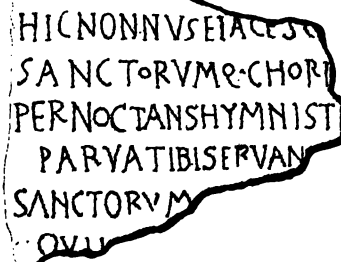 HICNONNVSEIACESC
SANCTORVMQ·CHORI
PERNOCTANSHYMNIST
PARVATIBISERVAN
SANCTORVM